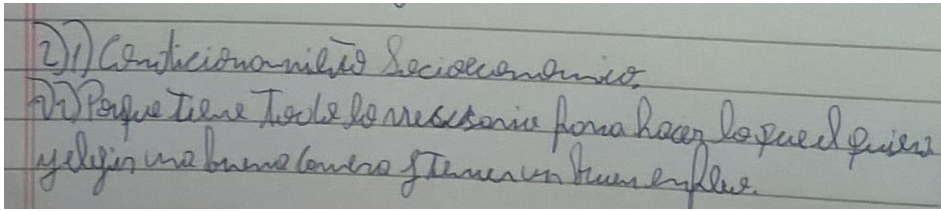 2)1) Condicionamiento Socioeconomico.
2) Porque tiene todo lo necesario para hacer lo que el quiera
y elegir una buena carrera y tener un buen empleo.